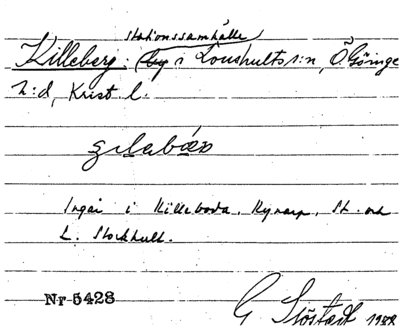 stationssamhälle
Killeberg: by i Loushults s:n, Ö. Göinge
h:d, Krist. l.
Ingår i Killeboda, Kynarp, St. och
L. Stockhult.
Nr 5428
G.